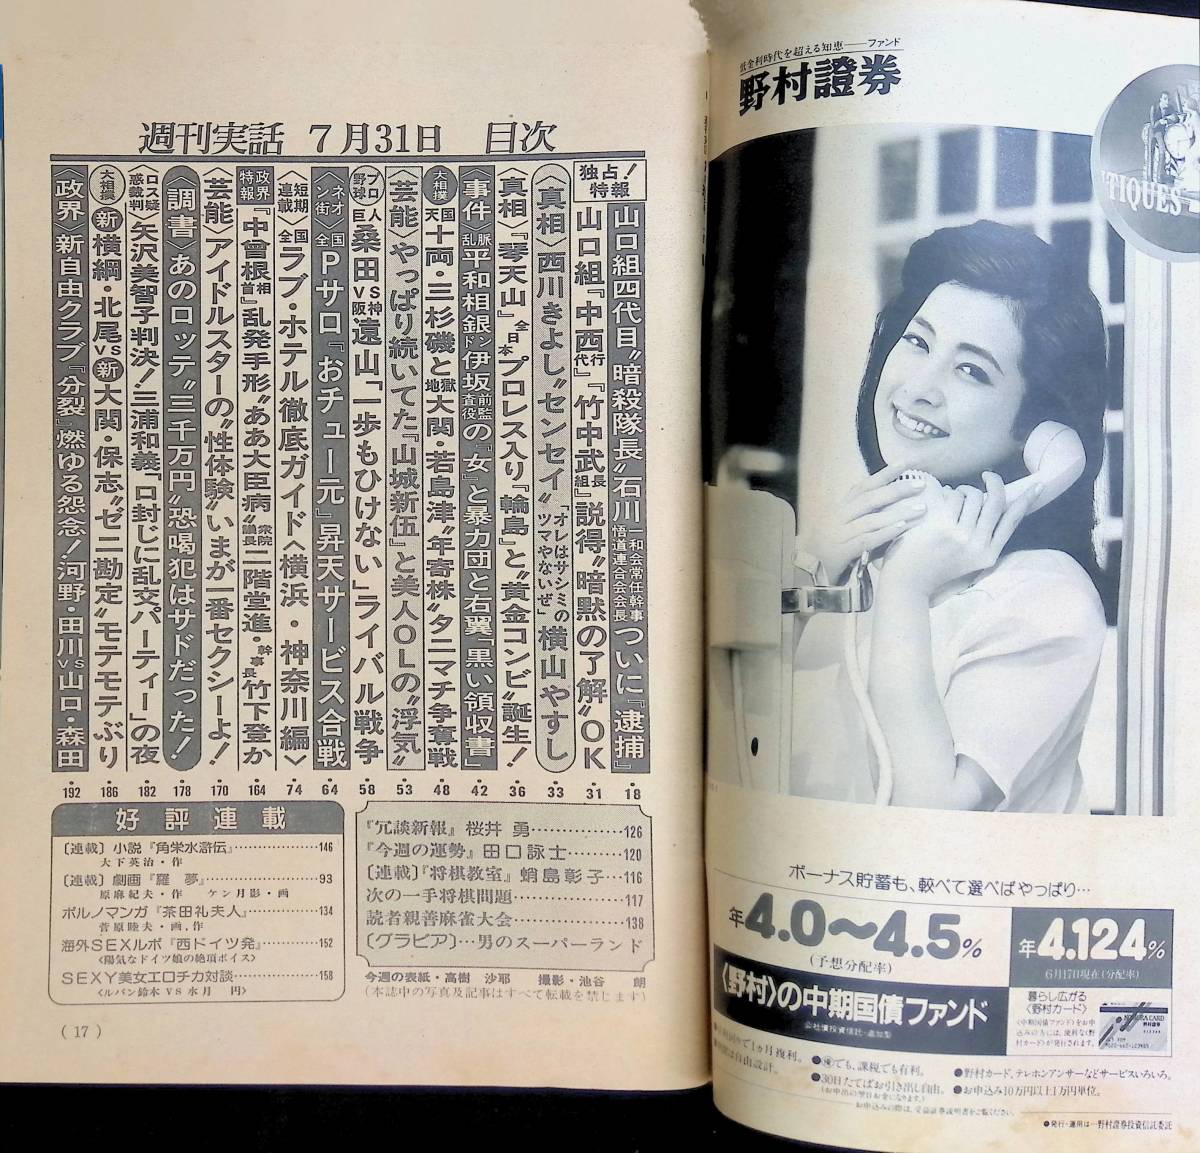 週刊実話 7月31日 目次
独占!特報 山口組四代目〝暗殺隊長〟石川 一和会常任幹事 悟道連合会会長 ついに『逮捕』 18
山口組『中西代行』『竹中武組長』説得〝暗黙の了解〟OK 31
〈真相〉西川きよし〝センセイ〟「オレはサシミのツマやないぜ」横山やすし 33
〈真相〉『琴天山』全日本プロレス入り『輪島』と〝黄金コンビ〟誕生! 36
〈事件〉乱脈平和相銀ドン伊坂前監査役の『女』と暴力団と右翼『黒い領収書』 42
大相撲 天国十両・三杉磯と地獄大関・若島津〝年寄株〟タニマチ争奪戦 48
〈芸能〉やっぱり続いてた『山城新伍』と美人OLの〝浮気〟 53
プロ野球 巨人桑田VS阪神遠山「一歩もひけない」ライバル戦争 58
〈ネオン街〉全国Pサロ『おチュー元』昇天サービス合戦 64
〈短期連載〉全国ラブ・ホテル徹底ガイド〈横浜・神奈川編〉 74
政界特報『中曾根首相』乱発手形〝ああ大臣病〟衆院議長二階堂進・幹事長竹下登か 164
〈芸能〉アイドルスターの〝性体験〟いまが一番セクシーよ! 170
〈調書〉あのロッテ〝三千万円〟恐喝犯はサドだった! 178
〈ロス疑惑裁判〉矢沢美智子判決!三浦和義「口封じに乱交パーティー」の夜 182
大相撲 新横綱・北尾VS新大関・保志〝ゼニ勘定〟モテモテぶり 186
〈政界〉新自由クラブ『分裂』燃ゆる怨念!河野・田川VS山口・森田 192
好評連載
〔連載〕小説『角栄水滸伝』…………146
大下英治・作
〔連載〕劇画『羅 夢』…………93
原麻紀夫・作 ケン月影・画
ポルノマンガ『茶田礼夫人』…………134
菅原睦夫・画、作
海外SEXルポ『西ドイツ発』…………152
〈陽気なドイツ娘の絶頂ボイス〉
SEXY美女エロチカ対談…………158
〈ルパン鈴木VS水月 円〉
『冗談新報』桜井 勇…………126
『今週の運勢』田口詠士…………120
〔連載〕『将棋教室』蛸島彰子…116
次の一手将棋問題…………117
読者親善麻雀大会…………138
〔グラビア〕…男のスーパーランド
今週の表紙・高樹 沙耶 撮影・池谷 朗
(本誌中の写真及記事はすべて転載を禁じます)
(17)
低金利時代を超える知恵——ファンド
野村證券
TIQUES
ボーナス貯蓄も、較べて選べばやっぱり…
年4.0〜4.5%
(予想分配率)
年4.124%
6月17日現在(分配率)
〈野村〉の中期国債ファンド
公社債投資信託・追加型
暮らし広がる
〈野村カード〉
〈中期国債ファンド〉をお申込みの方には、便利な〈野村カード〉が発行されます。
NOMURA CARD
で1ヵ月複利。
は自由設計。
●㊝でも、課税でも有利。
●30日たてばお引き出し自由。
(お申出の翌日お金になります。)
●野村カード、テレホンアンサーなどサービスいろいろ。
●お申込み10万円以上1万円単位。
お申込みの際は、受益証券説明書をご覧ください。
●発行・運用は—野村證券投資信託委託